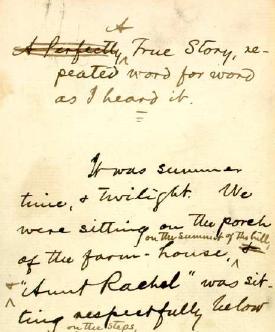 A
A Perfectly True Story, re-
peated word for word
as I heard it.
It was summer
time, & twilight. We
were sitting on the porch
on the summit of the hill,
of the farm-house, &
& "Aunt Rachel" was sit-
ting respectfully below
on the steps,